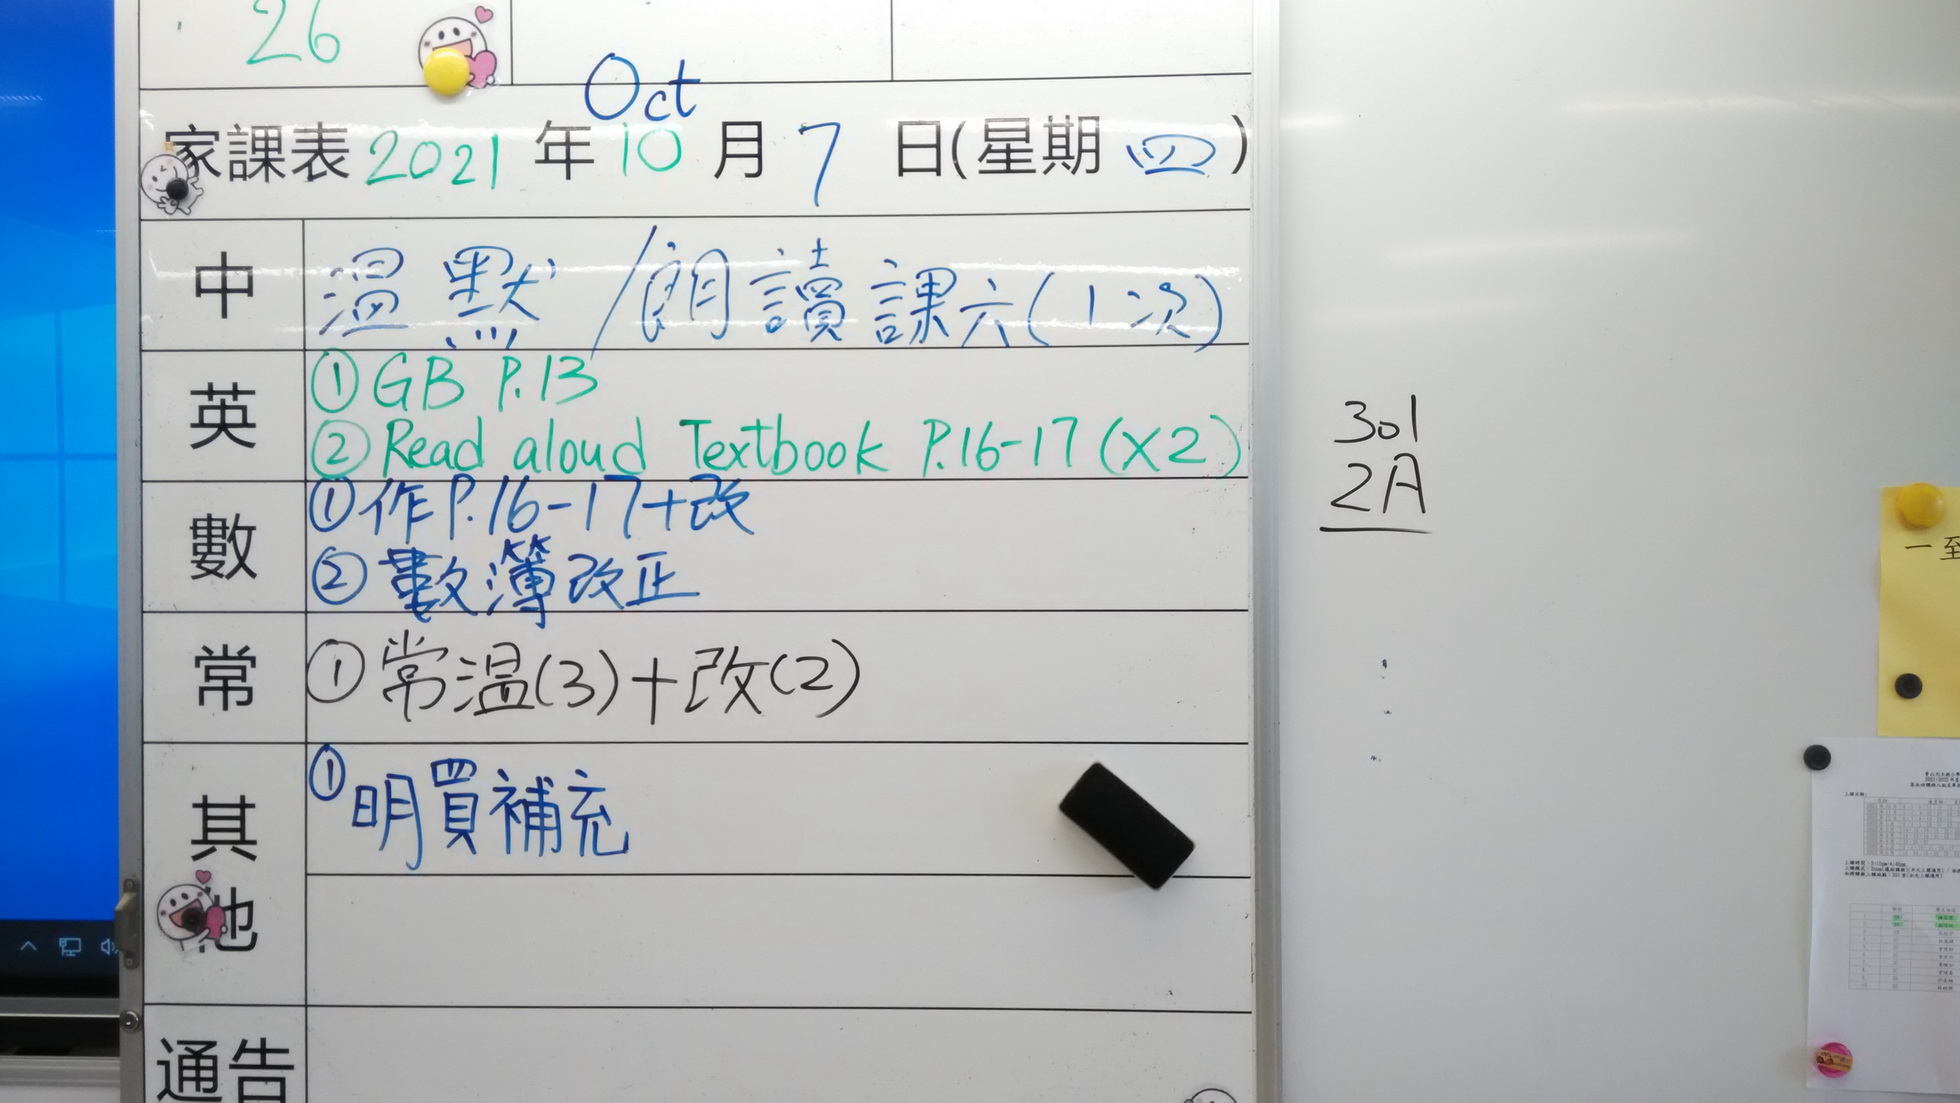 26
Oct
家課表 2021 年 10 月 7 日(星期 四)
中 温默/朗讀課六(1次)
英 ① GB P.13
② Read aloud Textbook P.16-17 (×2)
數 ① 作P.16-17+改
② 數簿改正
常 ① 常温(3)+改(2)
其他 ① 明買補充
通告
301
2A
一至